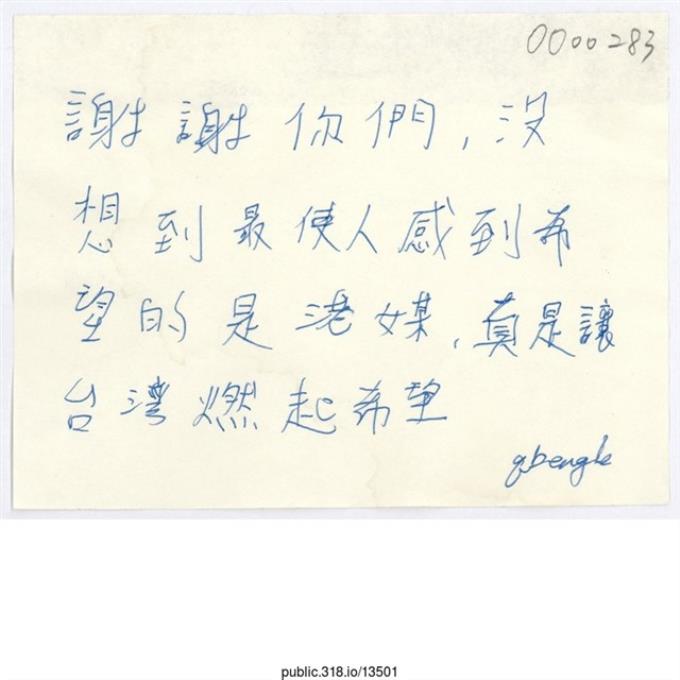 0000283
謝謝你們，沒
想到最使人感到希
望的是港媒，真是讓
台灣燃起希望
public.318.io/13501